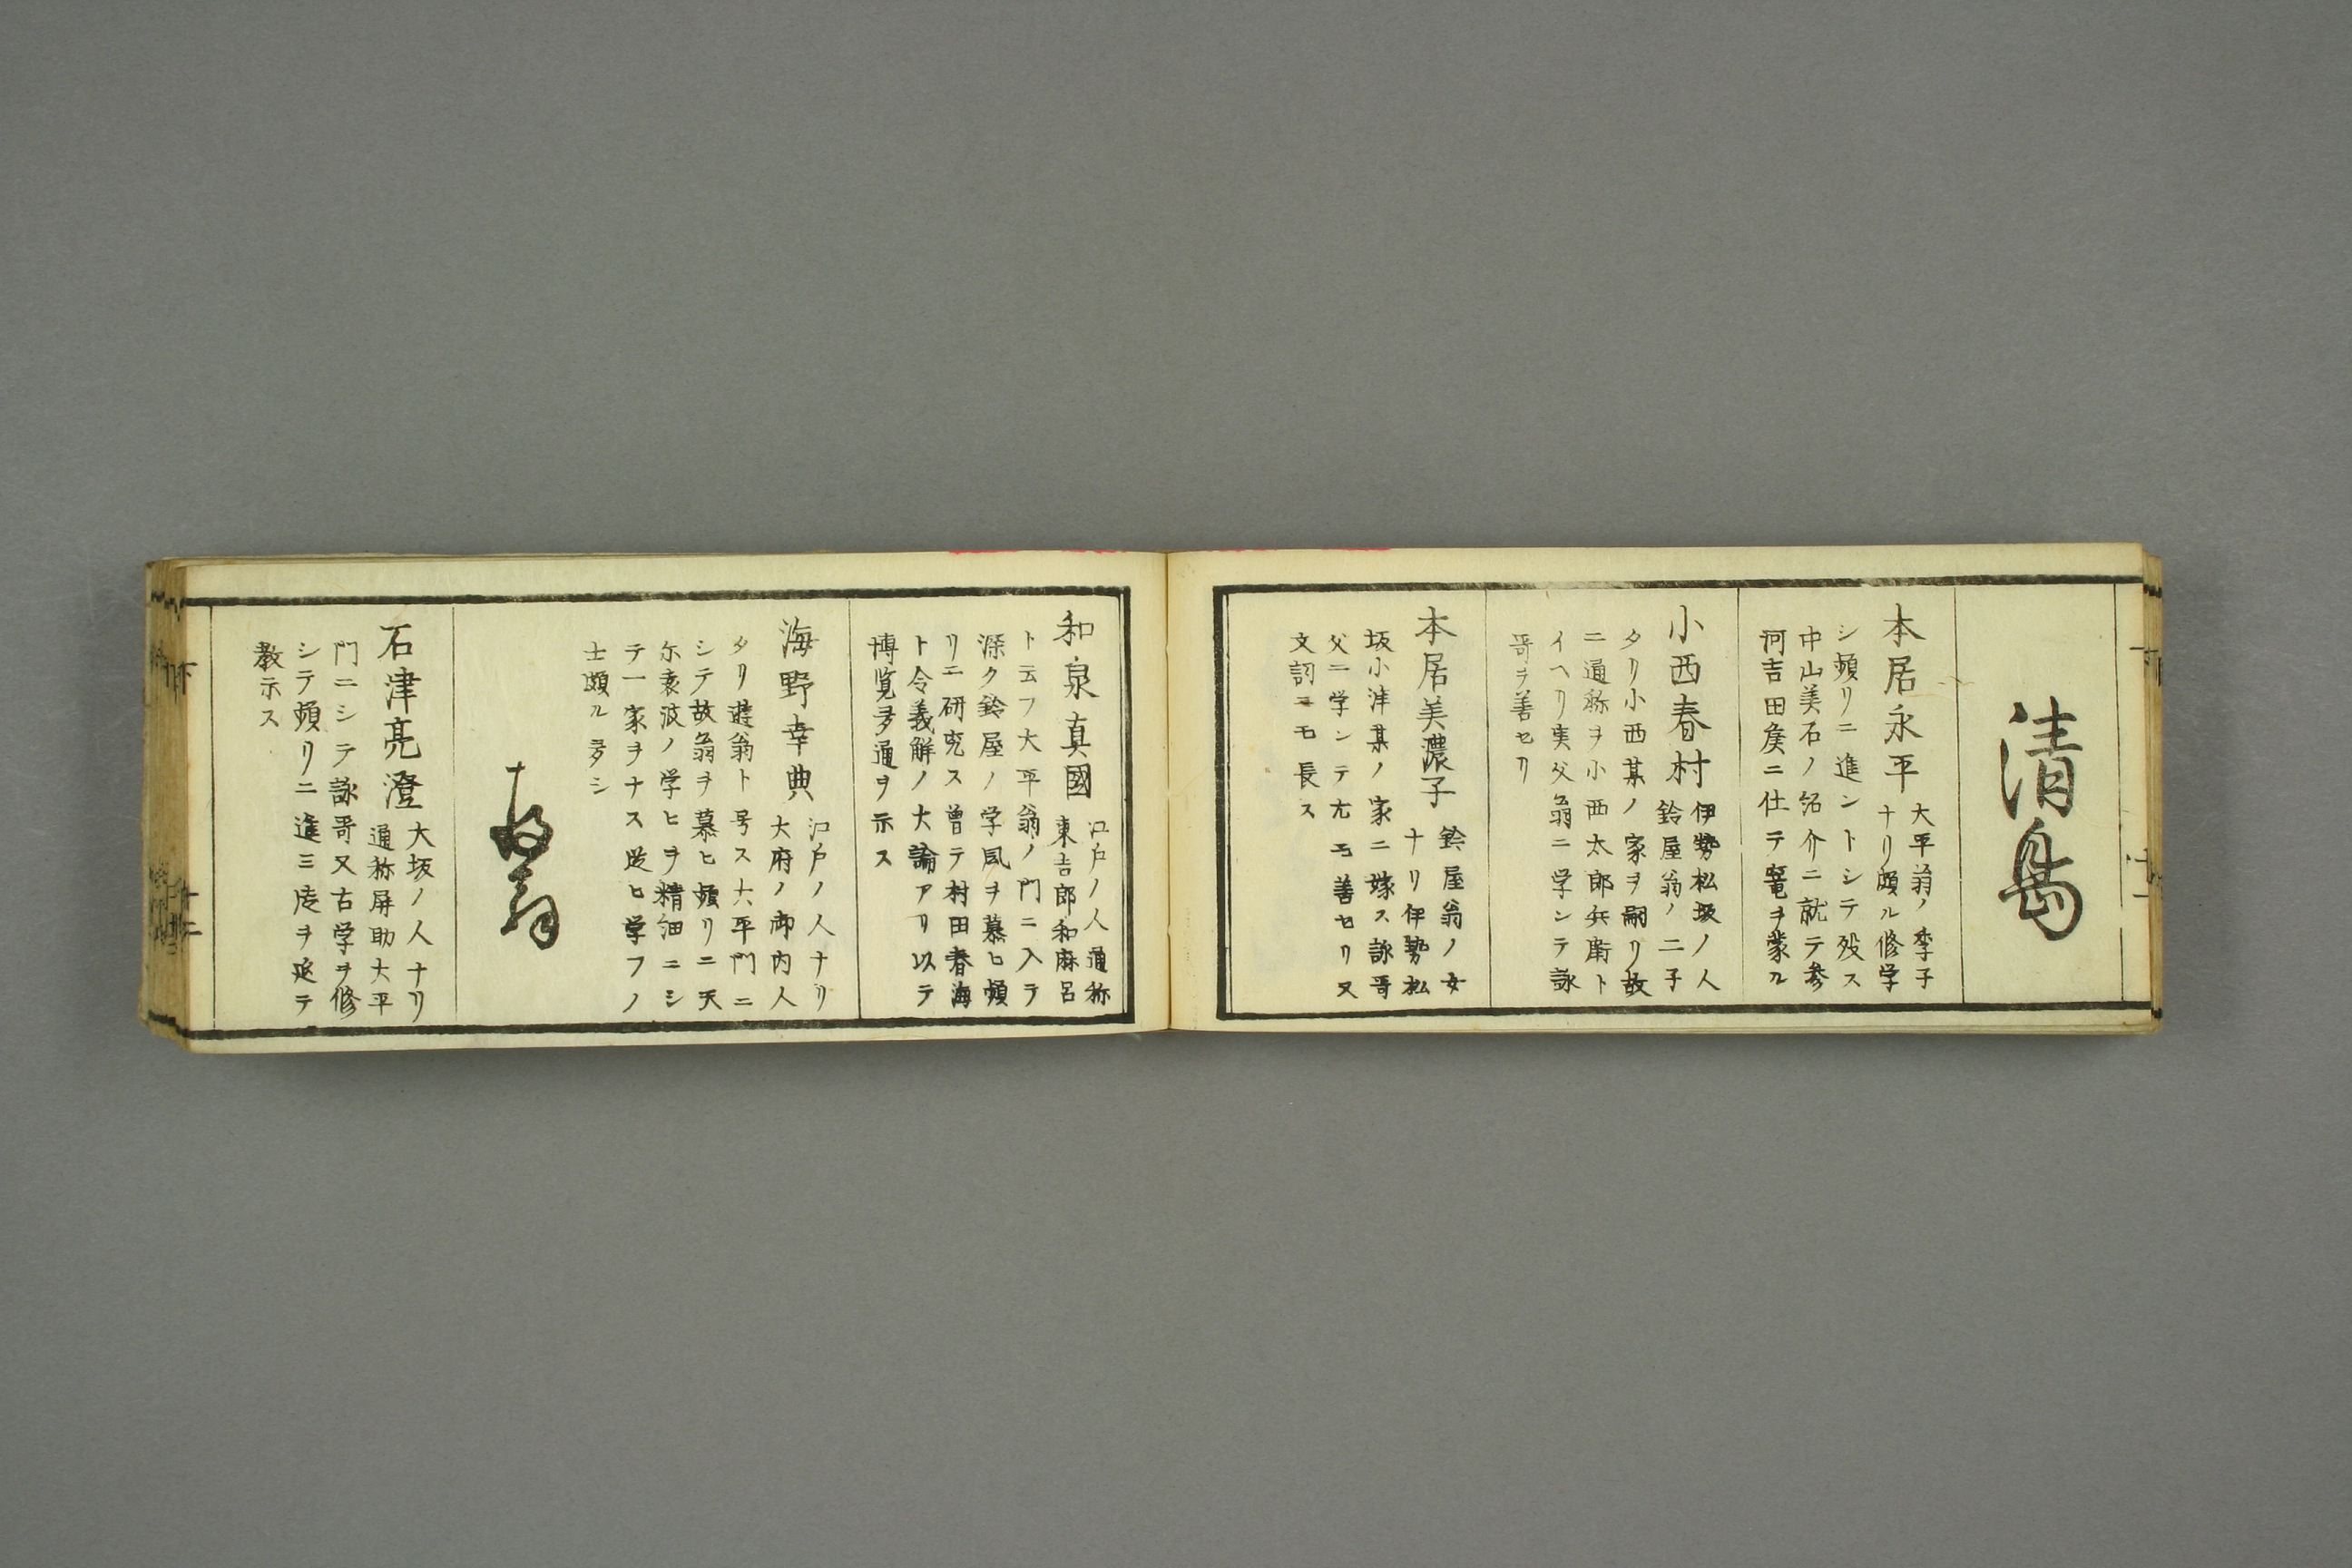 清島
本居永平 大平翁ノ季子
ナリ頗ル修学
シ頻リニ進ントシテ歿ス
中山美石ノ紹介ニ就テ参
河吉田矦ニ仕テ竜ヲ蒙ル
小西春村 伊勢松坂ノ人
鈴屋翁ノ二子
タリ小西某ノ家ヲ嗣リ故
ニ通称ヲ小西太郎兵衛ト
イヘリ実父翁ニ学ンテ詠
哥ヲ善セリ
本居美濃子 鈴屋翁ノ女
ナリ伊勢松
坂小津某ノ家ニ嫁ス詠哥
父ニ学ンテ尤モ善セリ又
文詞ニモ長ス
和泉真國 江戸ノ人通称
東吉郎和麻呂
ト云フ大平翁ノ門ニ入テ
深ク鈴屋ノ学風ヲ慕ヒ頻
リニ研究ス曽テ村田春海
ト令義解ノ大論アリ以テ
博覧多通ヲ示ス
海野幸典 江戸ノ人ナリ
大府ノ御内人
タリ遊翁ト号ス大平門ニ
シテ故翁ヲ慕ヒ頻リニ天
尓袁波ノ学ヒヲ精細ニシ
テ一家ヲナス従ヒ学フノ
士頗ル多シ
翁
石津亮澄 大坂ノ人ナリ
通称屏助大平
門ニシテ詠哥又古学ヲ修
シテ頻リニ進ミ徒ヲ延テ
教示ス